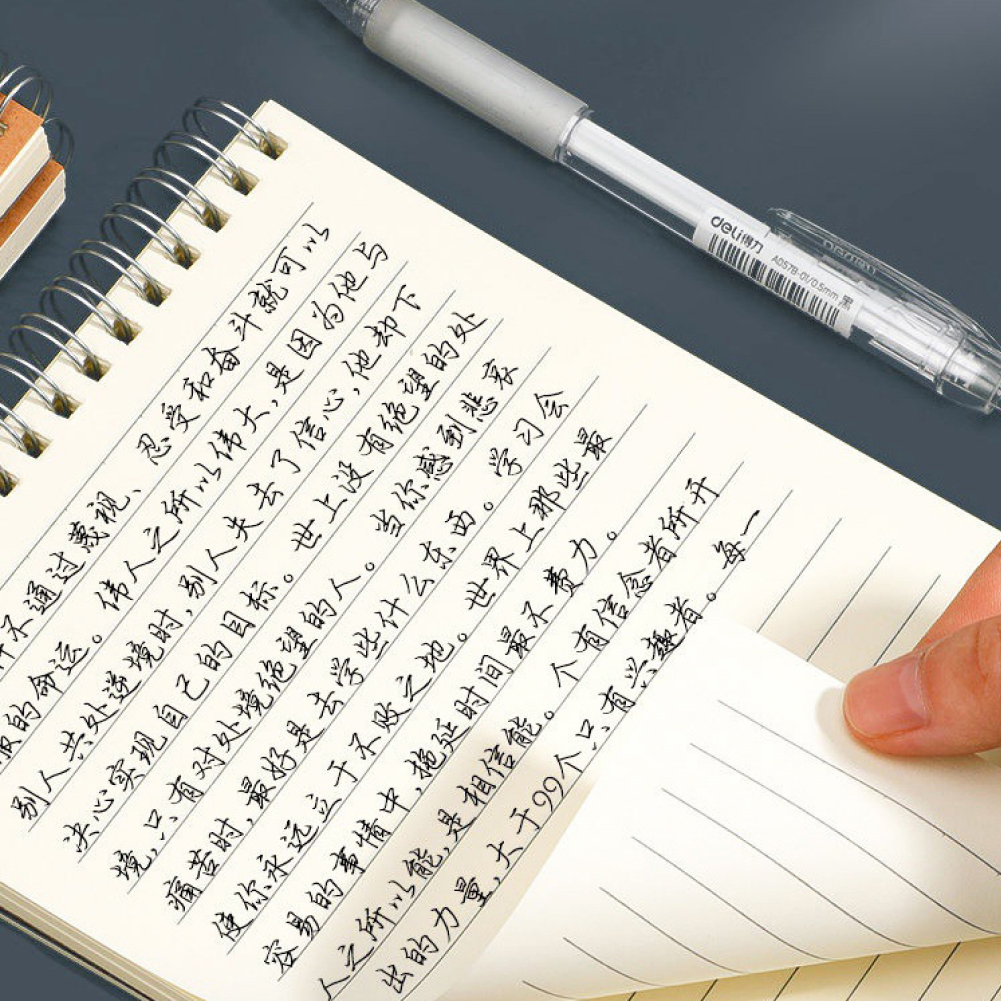 不通过蔑视、忍受和奋斗就可以
服的命运。伟人之所以伟大,是因为他与
别人共处逆境时,别人失去了信心,他却下
决心实现自己的目标。世上没有绝望的处
境,只有对处境绝望的人。当你感到悲哀
痛苦时,最好是去学些什么东西。学习会
使你永远立于不败之地。世界上那些最
容易的事情中,拖延时间最不费力。
人之所以能,是相信能。个有信念者所开
出的力量,大于99个只有兴趣者。每一
deli得力
A057B-01/0.5mm 黑